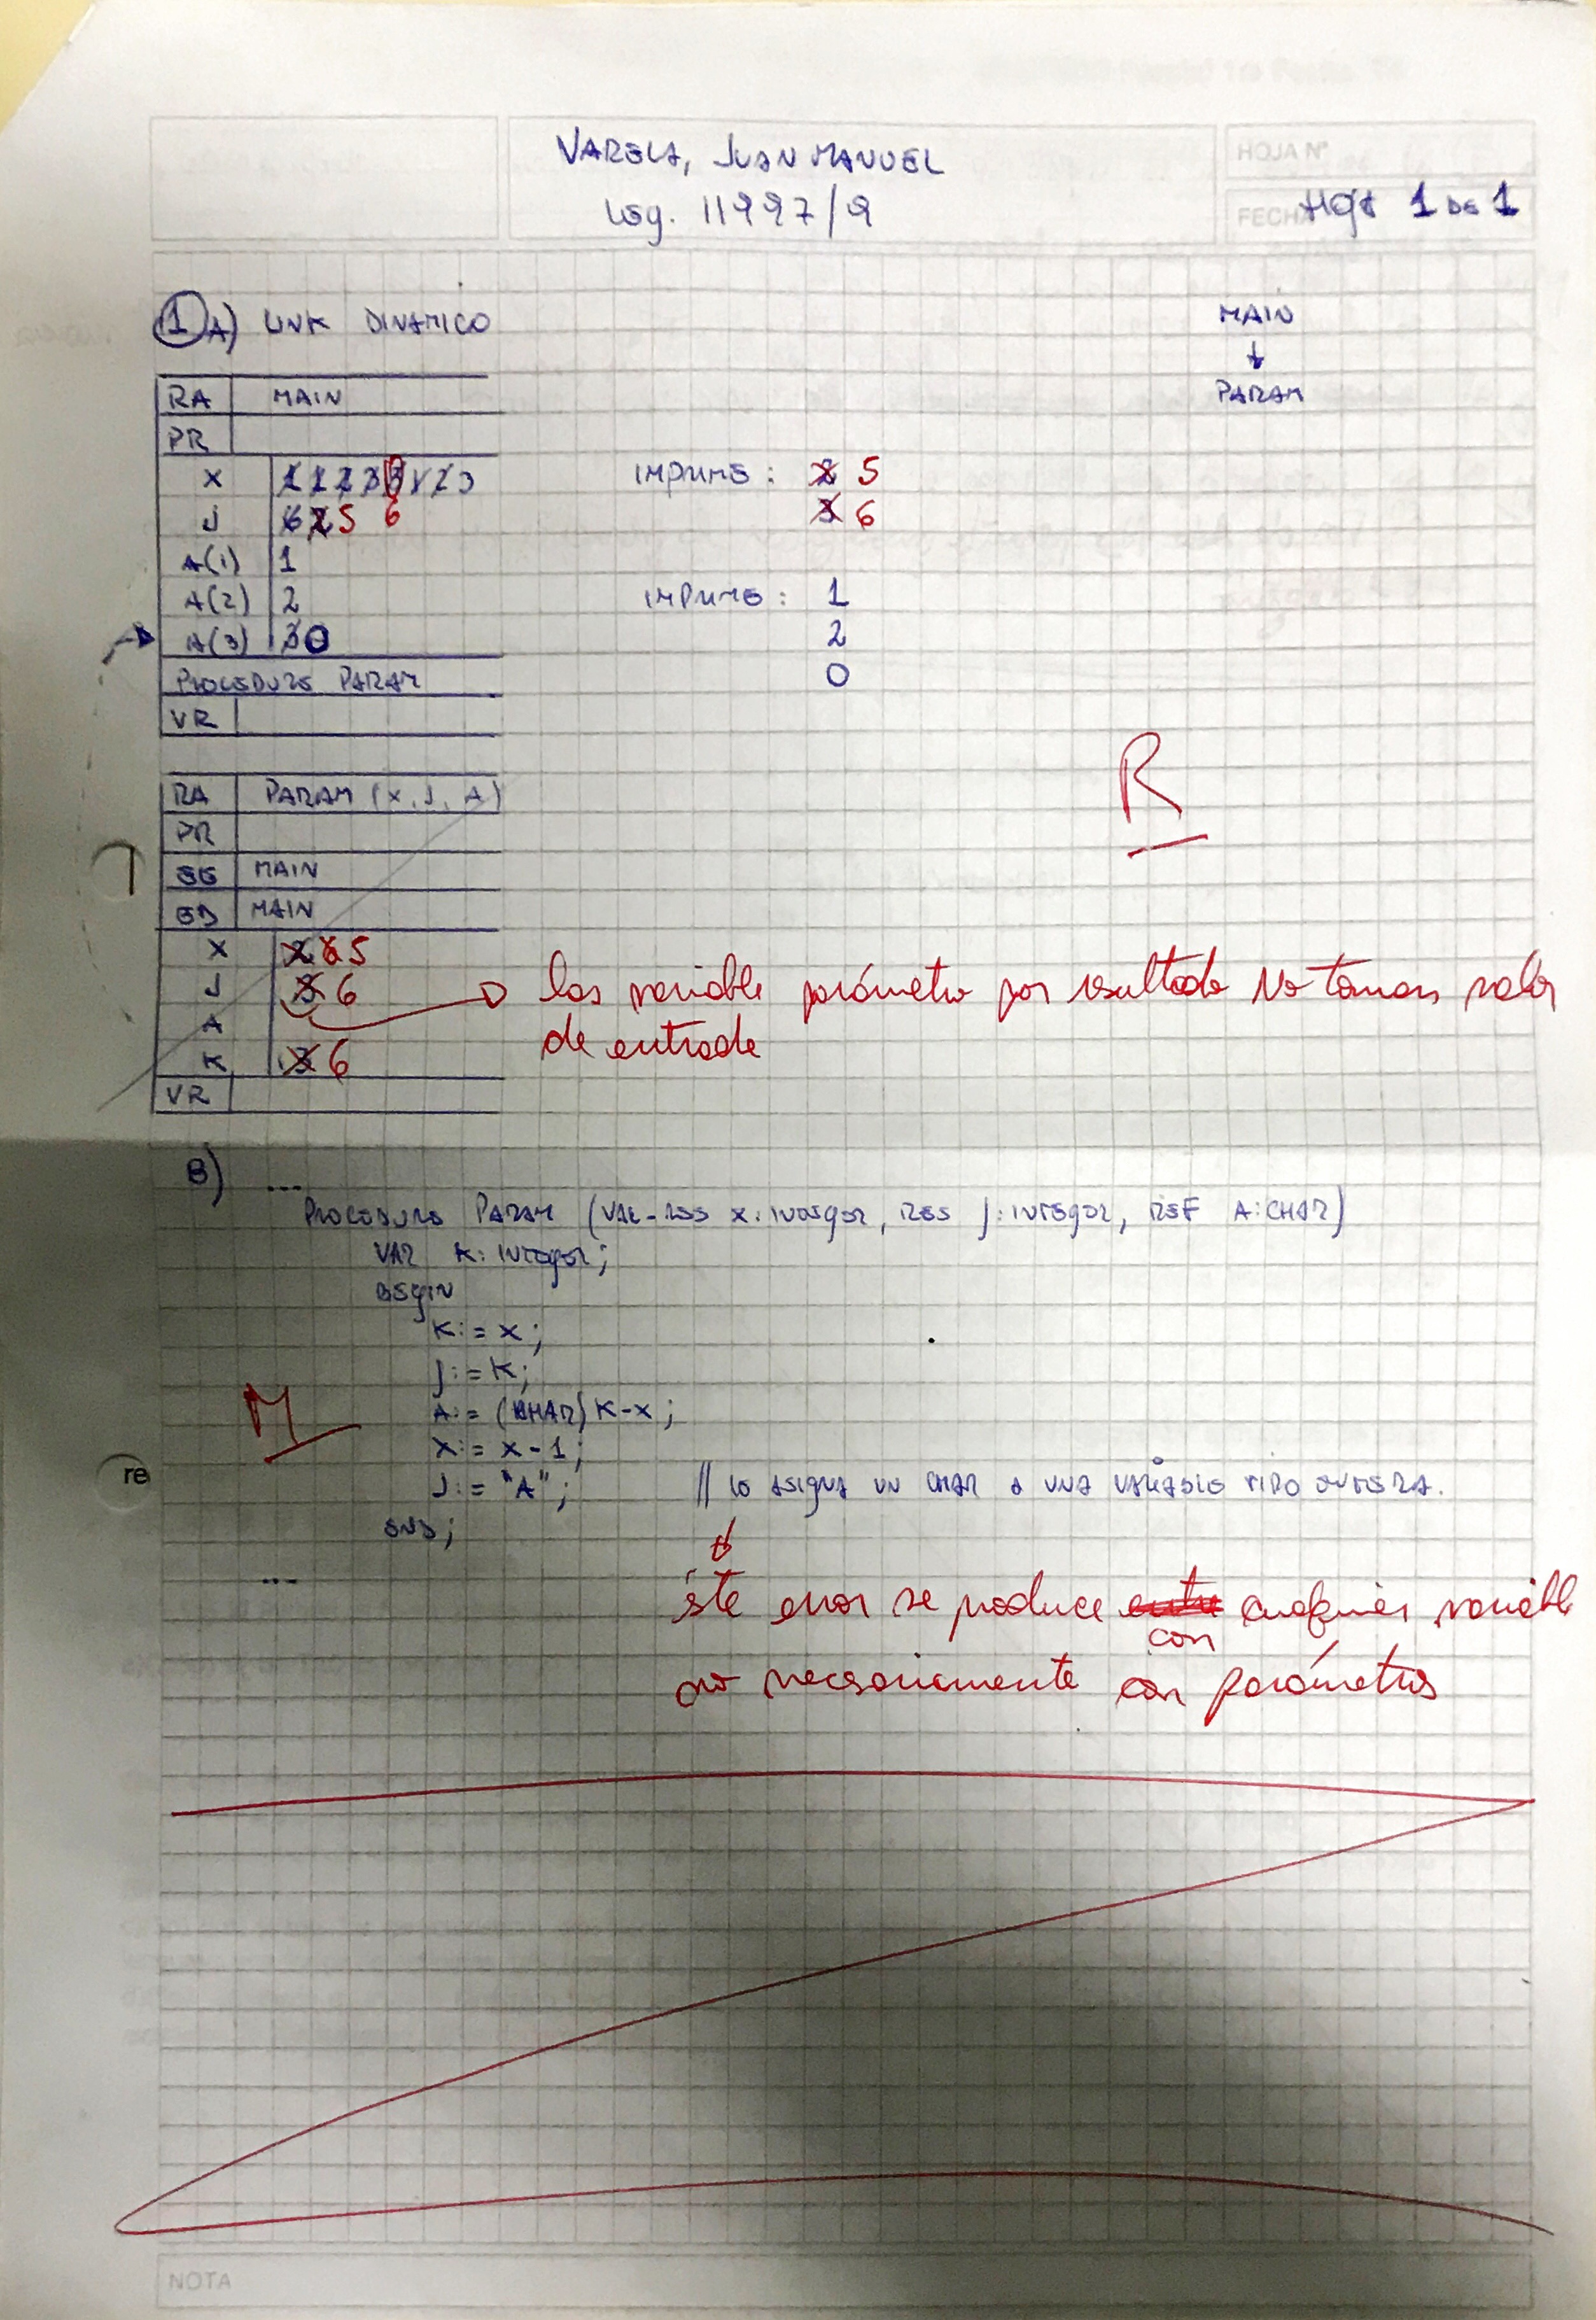 VARELA, JUAN MANUEL
Leg. 11997/9
HOJA N°
FECHA
HOJA 1 DE 1
1 A) LINK DINAMICO
MAIN
↓
PARAM
RA MAIN
PR
X 1 1 2 3 1 2 3
IMPRIME : 2 5
J 6 5 6
3 6
A(1) 1
A(2) 2
IMPRIME : 1
A(3) 3 0
2
PROCEDURE PARAM
0
VR
R
RA PARAM (X, J, A)
PR
EE MAIN
ED MAIN
X 5
J 3 6
las variable parámetro por resultado No toman valor
A
de entrada
K 3 6
VR
B) ...
PROCEDURE PARAM (VAL-RES X: INTEGER, RES J: INTEGER, REF A: CHAR)
VAR K: INTEGER;
BEGIN
K:= X;
J:= K;
M
A:= (CHAR) K-X;
X:= X-1;
re
J:= "A"; // LE ASIGNA UN CHAR A UNA VARIABLE TIPO ENTERA.
END;
...
éste error se produce entre con cualquier variable
no necesariamente con parámetros
NOTA